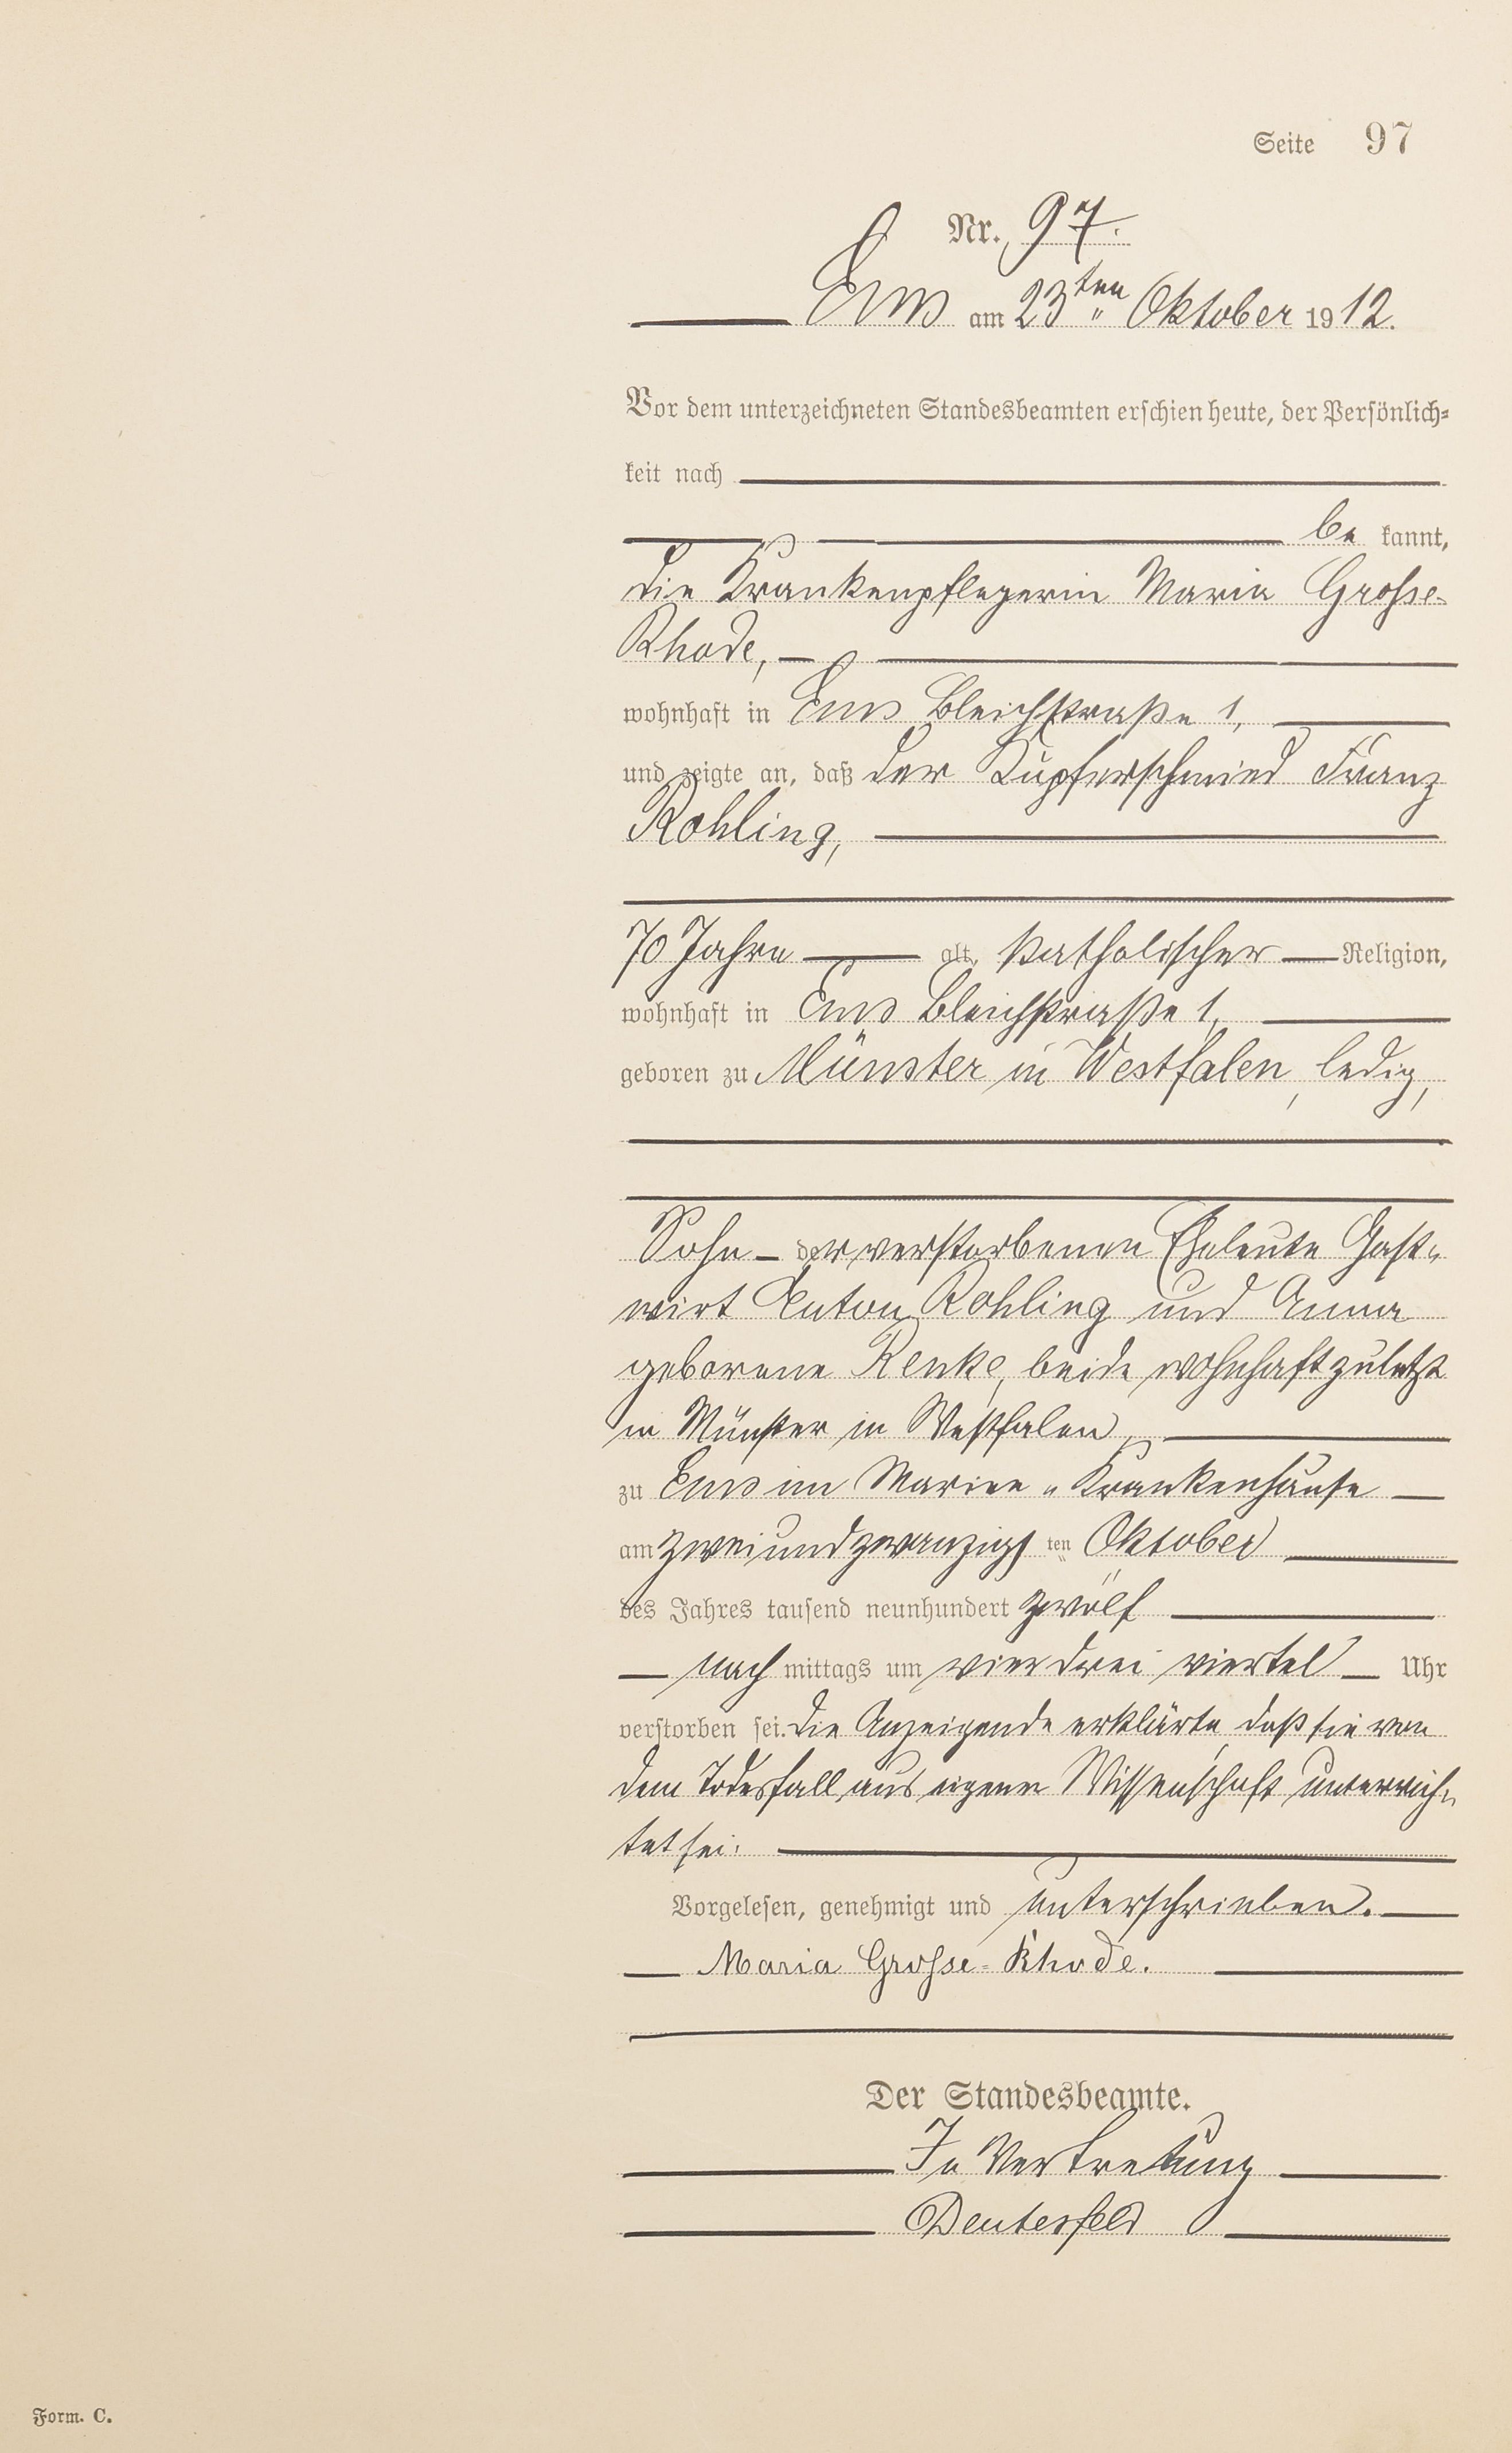 Seite 97
Nr. 97.
Ems am 23ten Oktober 1912.
Vor dem unterzeichneten Standesbeamten erschien heute, der Persönlich-
keit nach
be kannt,
die Krankenpflegerin Maria Grosse-
Rhode,
wohnhaft in Ems Bleichstraße 1,
und zeigte an, daß der Kupferschmied Franz
Rohling,
70 Jahre alt, katholischer Religion,
wohnhaft in Ems Bleichstraße 1,
geboren zu Münster in Westfalen, ledig,
Sohn der verstorbenen Eheleute Gast-
wirt Anton Rohling und Anna
geborene Renke, beide wohnhaft zuletzt
in Münster in Westfalen,
zu Ems im Marien-Krankenhause
am zweiundzwanzigsten Oktober
des Jahres tausend neunhundert zwölf
nach mittags um vier drei viertel Uhr
verstorben sei. Die Anzeigende erklärte, daß sie von
dem Todesfall aus eigener Wissenschaft unterrich-
tet sei.
Vorgelesen, genehmigt und unterschrieben.
Maria Grosse-Rhode.
Der Standesbeamte.
In Vertretung
Deutesfeld
Form. C.